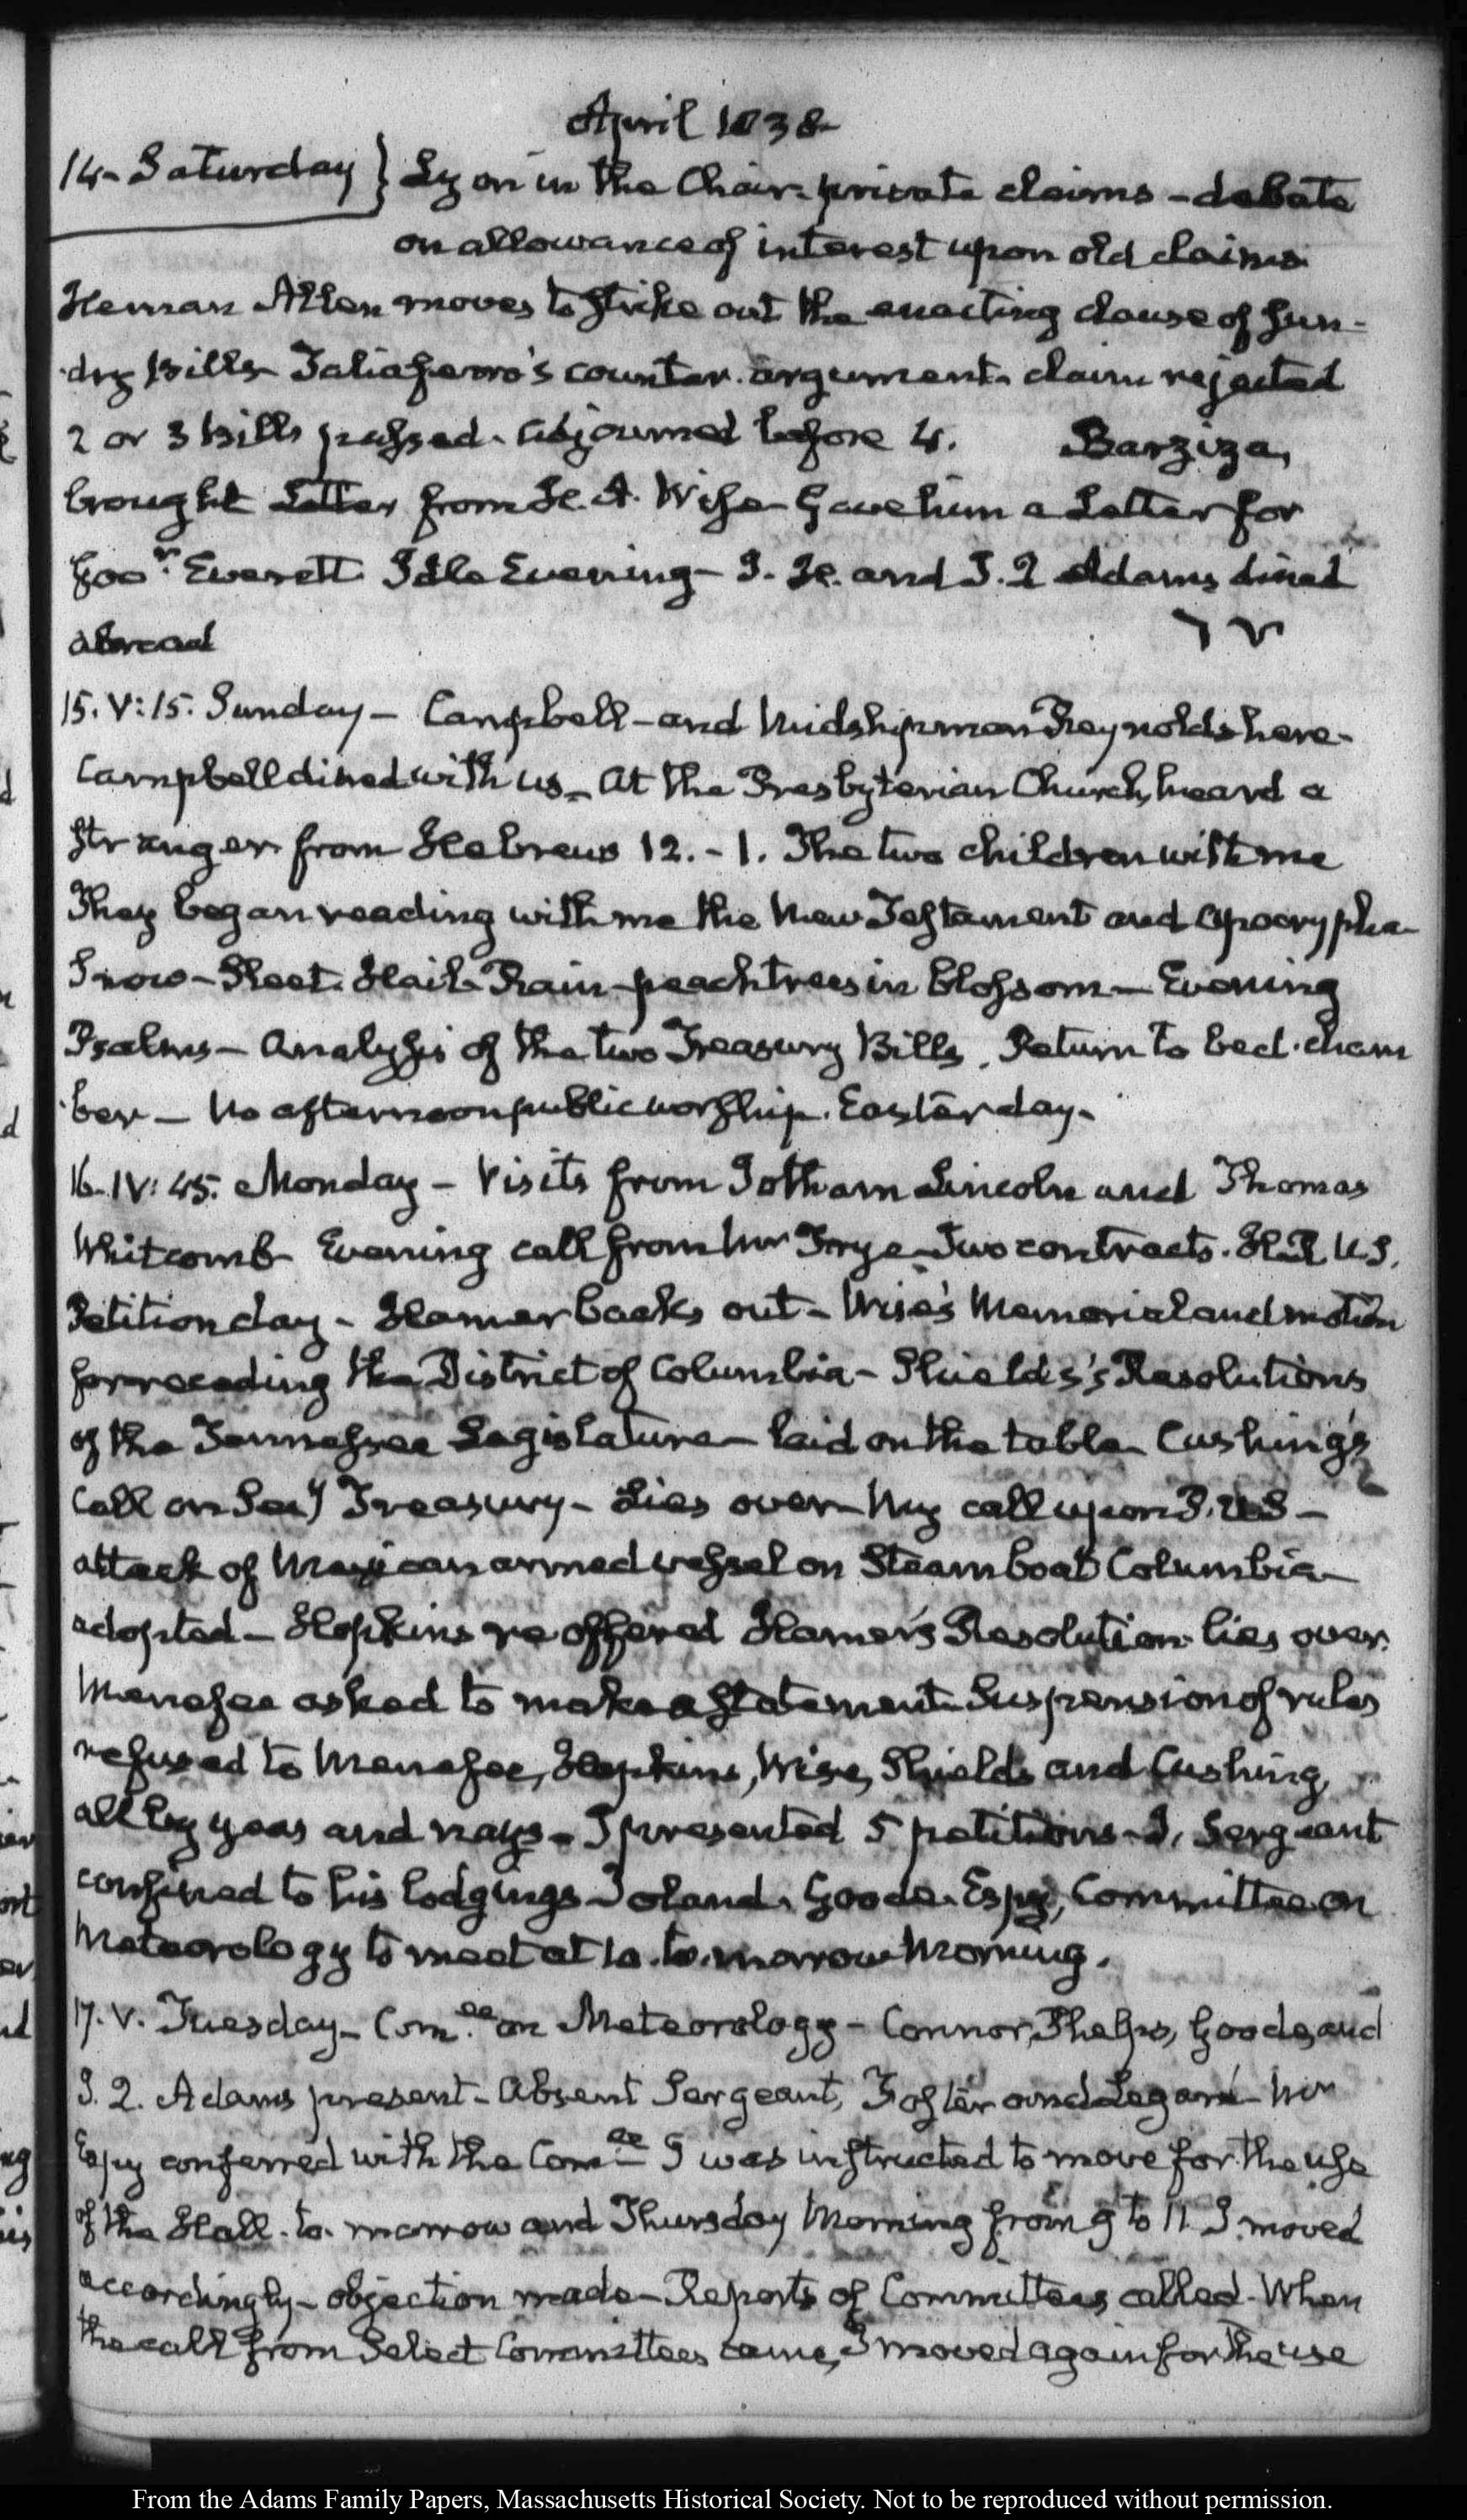 April 1838
14. Saturday } Lyon in the Chair. private claims – debate
on allowance of interest upon old claims
Heman Allen moves to strike out the enacting clause of sun-
dry Bills. Taliaferro's counter. argument. claim rejected
2 or 3 bills passed. Adjourned before 4. Barziza,
brought Letter from H. A. Wise Gave him a Letter for
Govr. Everett. Idle Evening – I. H. and J. Q Adams dined
abroad
15. V: 15. Sunday – Campbell – and Midshipman Reynolds here.
Campbell dined with us – At the Presbyterian Church, heard a
stranger from Hebrews 12. – 1. The two children with me
They began reading with me the New Testament and Apocrypha
Snow – Sleet. Hail Rain – peach trees in blossom – Evening
Psalms – Analysis of the two Treasury Bills. Return to bed. cham
ber – No afternoon public worship. Easter day.
16. IV: 45. Monday – Visits from Jotham Lincoln and Thomas
Whitcomb Evening call from Mr Frye – Two contracts. H.R. U.S.
Petition day – Hamer backs out – Wise's Memorial and motion
for receding the District of Columbia – Shields's Resolutions
of the Tennessee Legislature – laid on the table Cushing's
Call on Secy Treasury – Lies over – My call upon P. U.S –
attack of Mexican armed vessel on Steamboat Columbia –
adopted – Hopkins re offered Hamer's Resolution lies over.
Menefee asked to make a statement. Suspension of rules
refused to Menefee, Hopkins, Wise, Shields and Cushing,
all by yeas and nays – I presented 5 petitions – J. Sergeant
confined to his lodgings Toland. Goode. Espy, Committee on
Meteorology to meet at 10. to. morrow Morning.
17. V. Tuesday – Com.ee on Meteorology – Connor, Phelps, Goode, and
J. Q. Adams present – Absent Sergeant, Foster and Legaré – Mr
Espy conferred with the Comee I was instructed to move for the use
of the Hall. to. morrow and Thursday Morning from 9 to 11. I moved
accordingly – objection made – Reports of Committees called. When
the call from Select Committees came, I moved again for the use
From the Adams Family Papers, Massachusetts Historical Society. Not to be reproduced without permission.